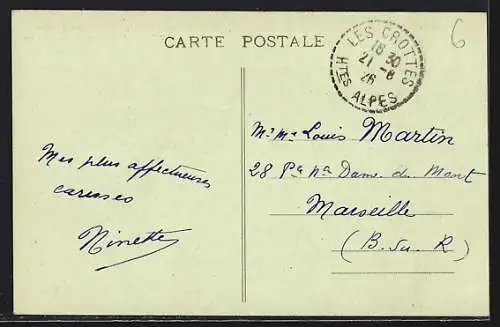 CARTE POSTALE
6
LES CROTTES
18 30
21 -8
26
Htes ALPES
Mes plus affectueuses
caresses
Ninette
Mr Me Louis Martin
28 Pde Na Dame du Mont
Marseille
(B. du R)